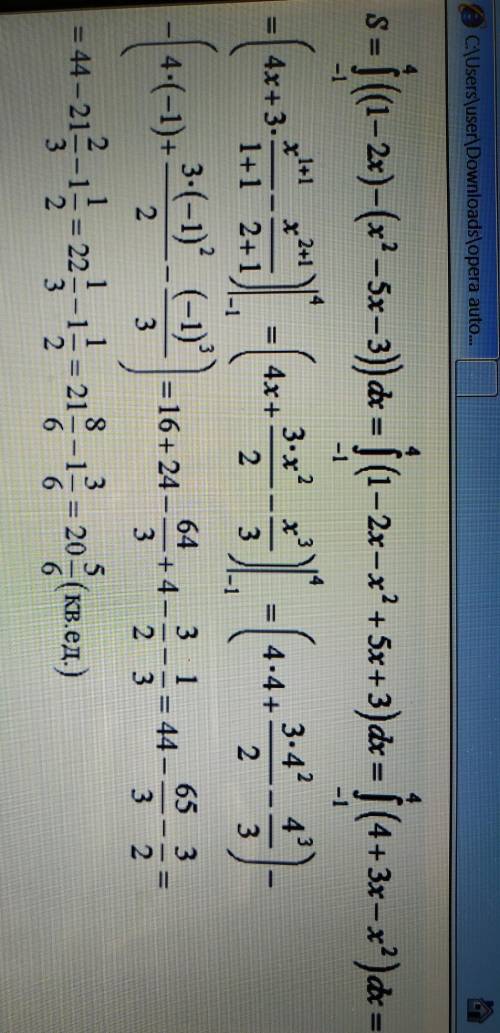 C:\Users\user\Downloads\opera auto...
S = ∫₋₁⁴ ((1−2x)−(x²−5x−3))dx = ∫₋₁⁴ (1−2x−x²+5x+3)dx = ∫₋₁⁴ (4+3x−x²)dx =
= (4x+3·x¹⁺¹/(1+1) − x²⁺¹/(2+1))|₋₁⁴ = (4x+3·x²/2 − x³/3)|₋₁⁴ = (4·4+3·4²/2 − 4³/3)−
−(4·(−1)+3·(−1)²/2 − (−1)³/3) = 16+24−64/3+4−3/2−1/3 = 44−65/3−3/2 =
= 44−21 2/3−1 1/2 = 22 1/3−1 1/2 = 21 8/6−1 3/6 = 20 5/6 (кв.ед.)